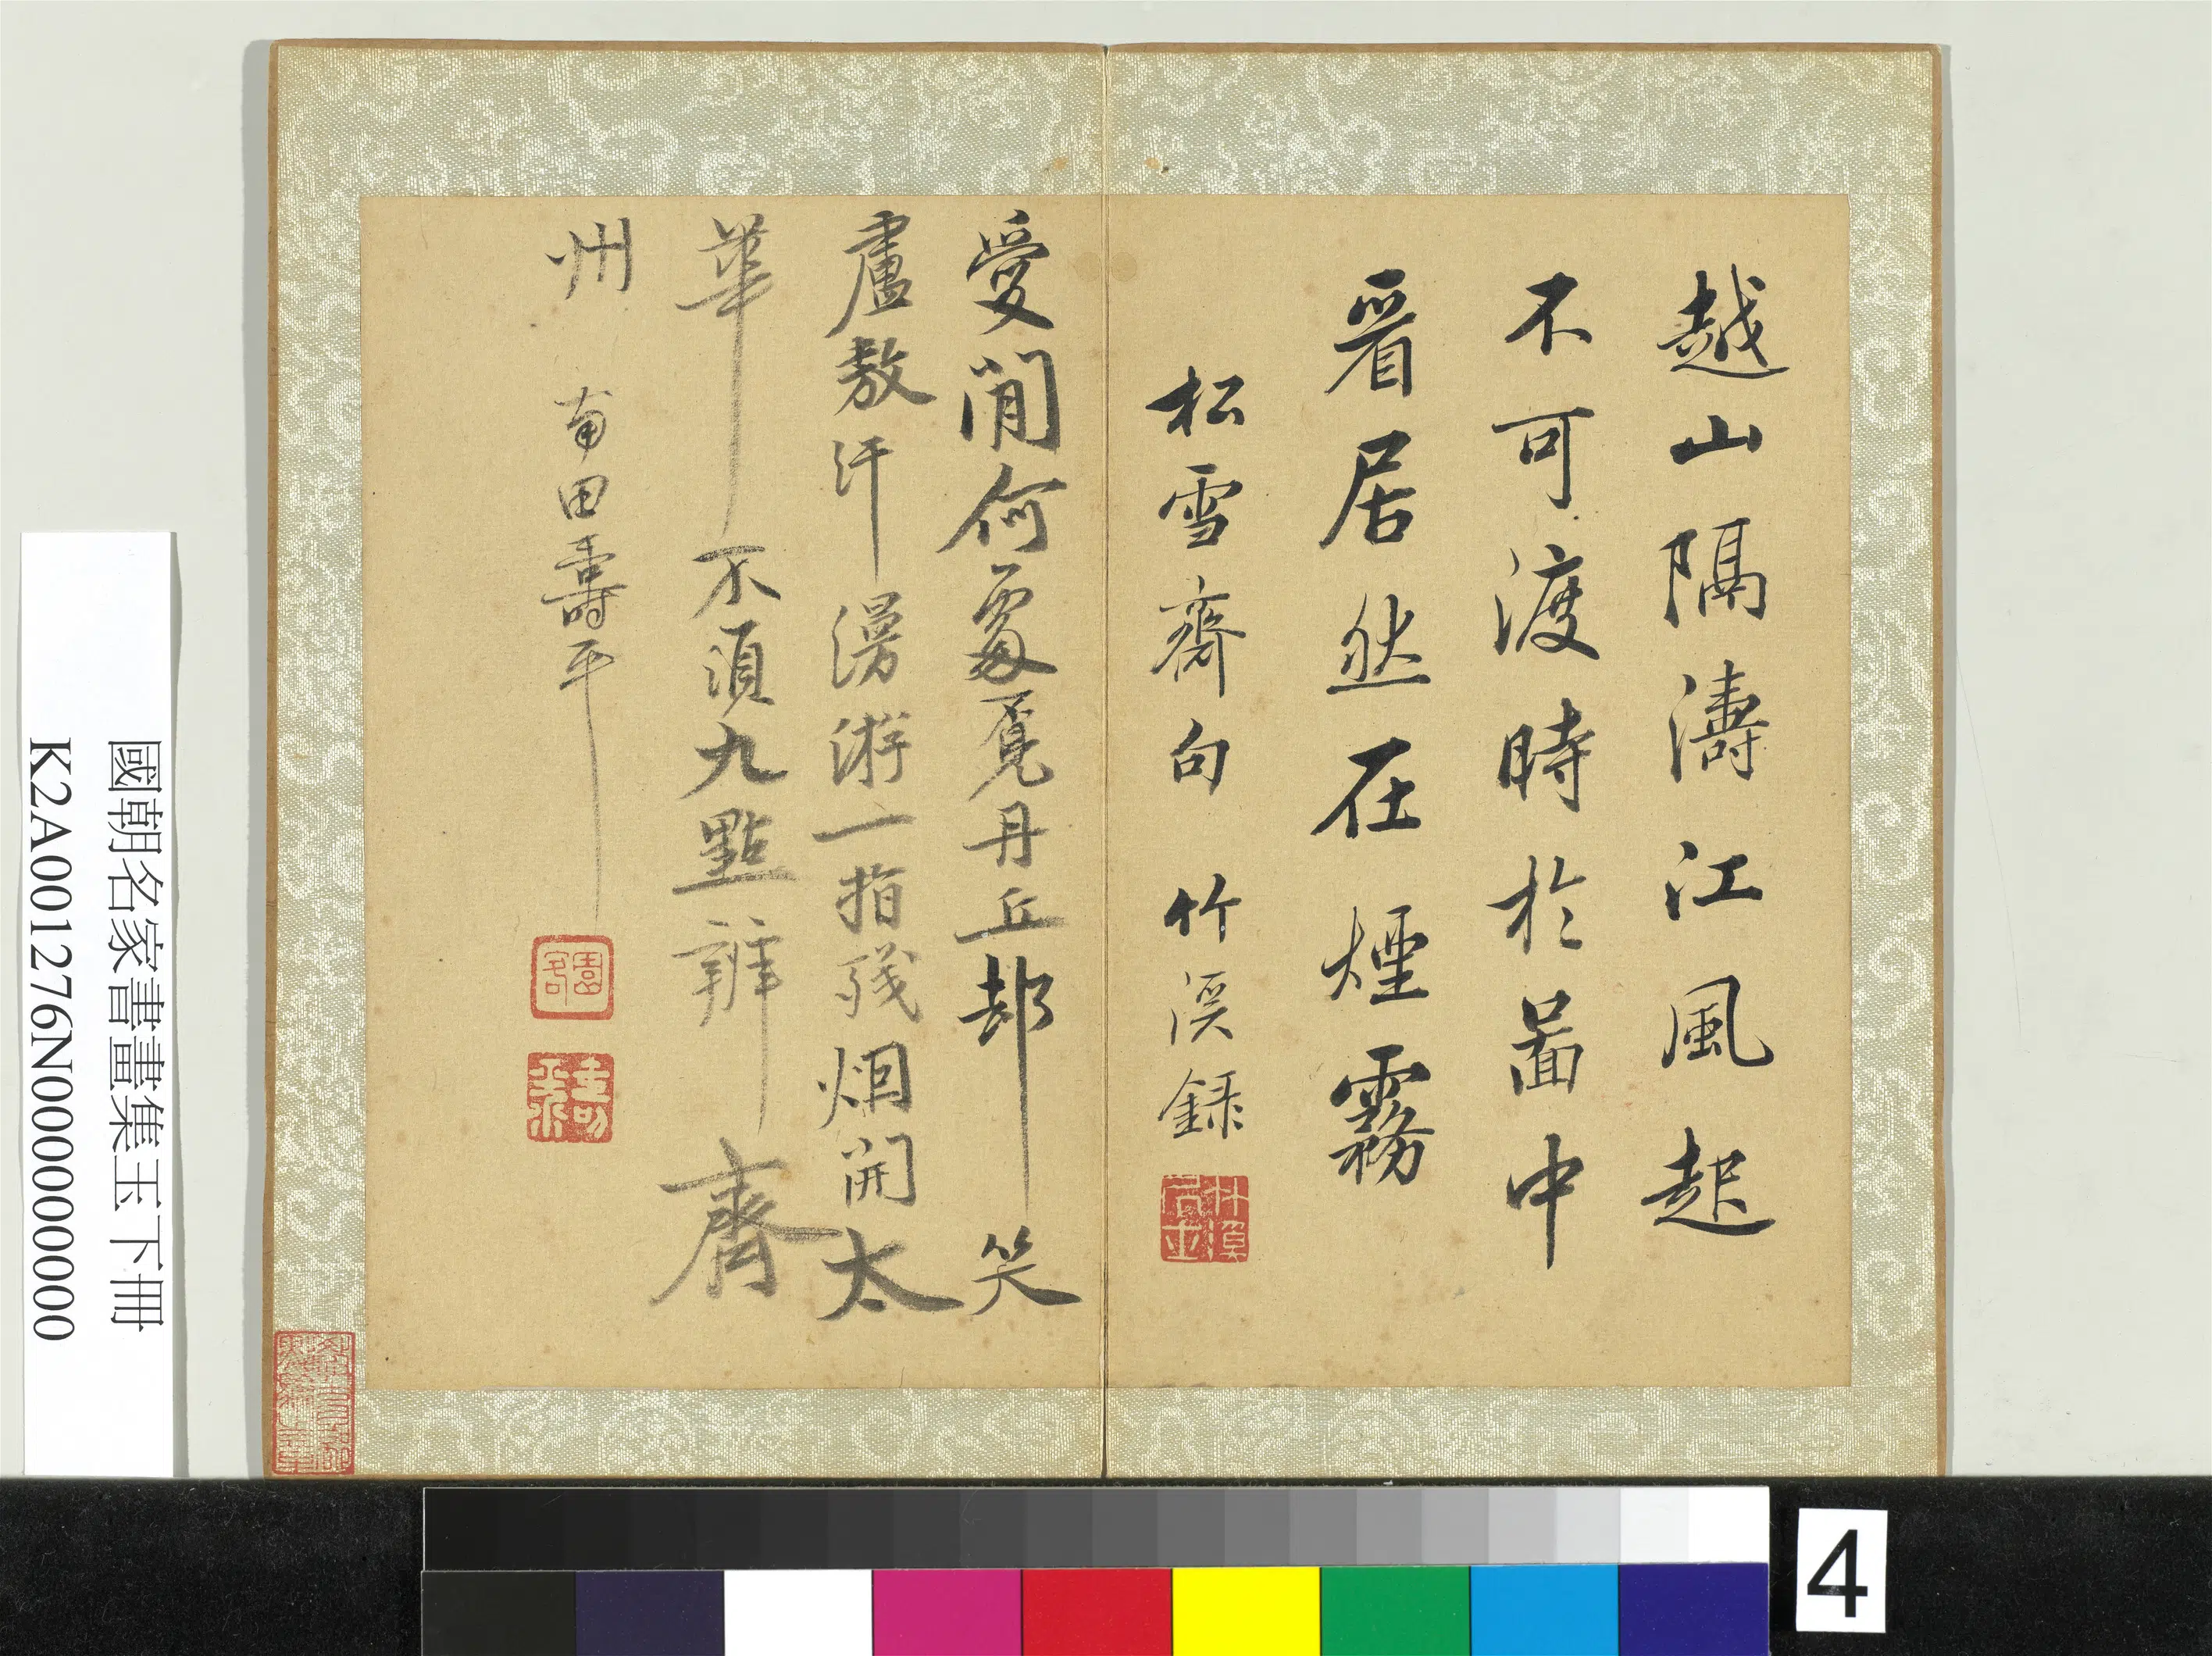 越山隔濤江風起
不可渡時於啚中
看居然在煙霧
松雪齋句 竹溪録
受閒何處覔丹丘却笑
盧敖汗漫游一指殘烟開太
華不須九點辨齊
州 南田壽平
園客
國朝名家書畫集玉下冊
K2A001276N000000000
4